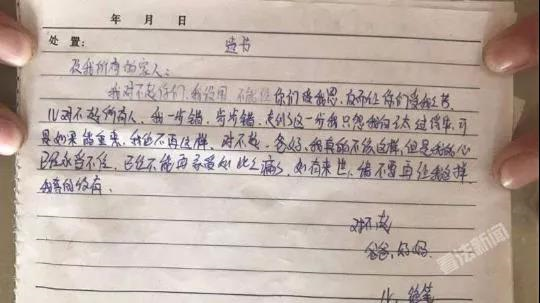 年 月 日
处置: 遗书
致我所有的家人:
我对不起你们,我没用,不能让你们受我恩,反而让你们受我之苦
儿对不起所有人,我一步错,步步错,走到这一步我只想我白子太过得华,可
是如果能重来,我绝不再这样,对不起,爸妈,我真的不该这样,但是我的心
已经承当不住,已经不能再承受如此之痛了,如有来世,请不要再让我这样
我真的没有
对不起
爸爸,妈妈
儿 绝笔
看法新闻